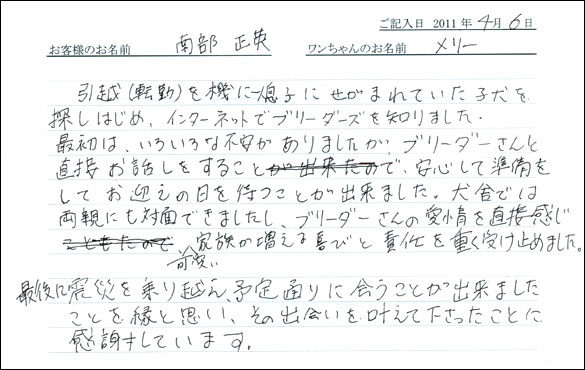 ご記入日 2011年4月6日
お客様のお名前 南部 正英 ワンちゃんのお名前 メリー
引越(転勤)を機に息子にせがまれていた子犬を
探しはじめ、インターネットでブリーダーズを知りました。
最初は、いろいろな不安がありましたが、ブリーダーさんと
直接お話しをすることが出来たので、安心して準備を
してお迎えの日を待つことが出来ました。犬舎では
両親にも対面できましたし、ブリーダーさんの愛情を直接感じ
こともたので 家族が増える喜びと責任を重く受け止めました。
可愛い
最後に震災を乗り越え、予定通りに会うことが出来ました
ことを縁と思い、その出会いを叶えて下さったことに
感謝しています。